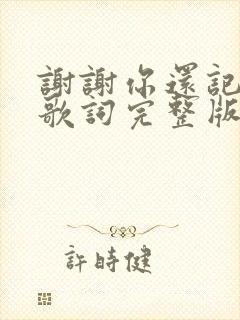 謝謝你還記
歌詞完整版
許時健